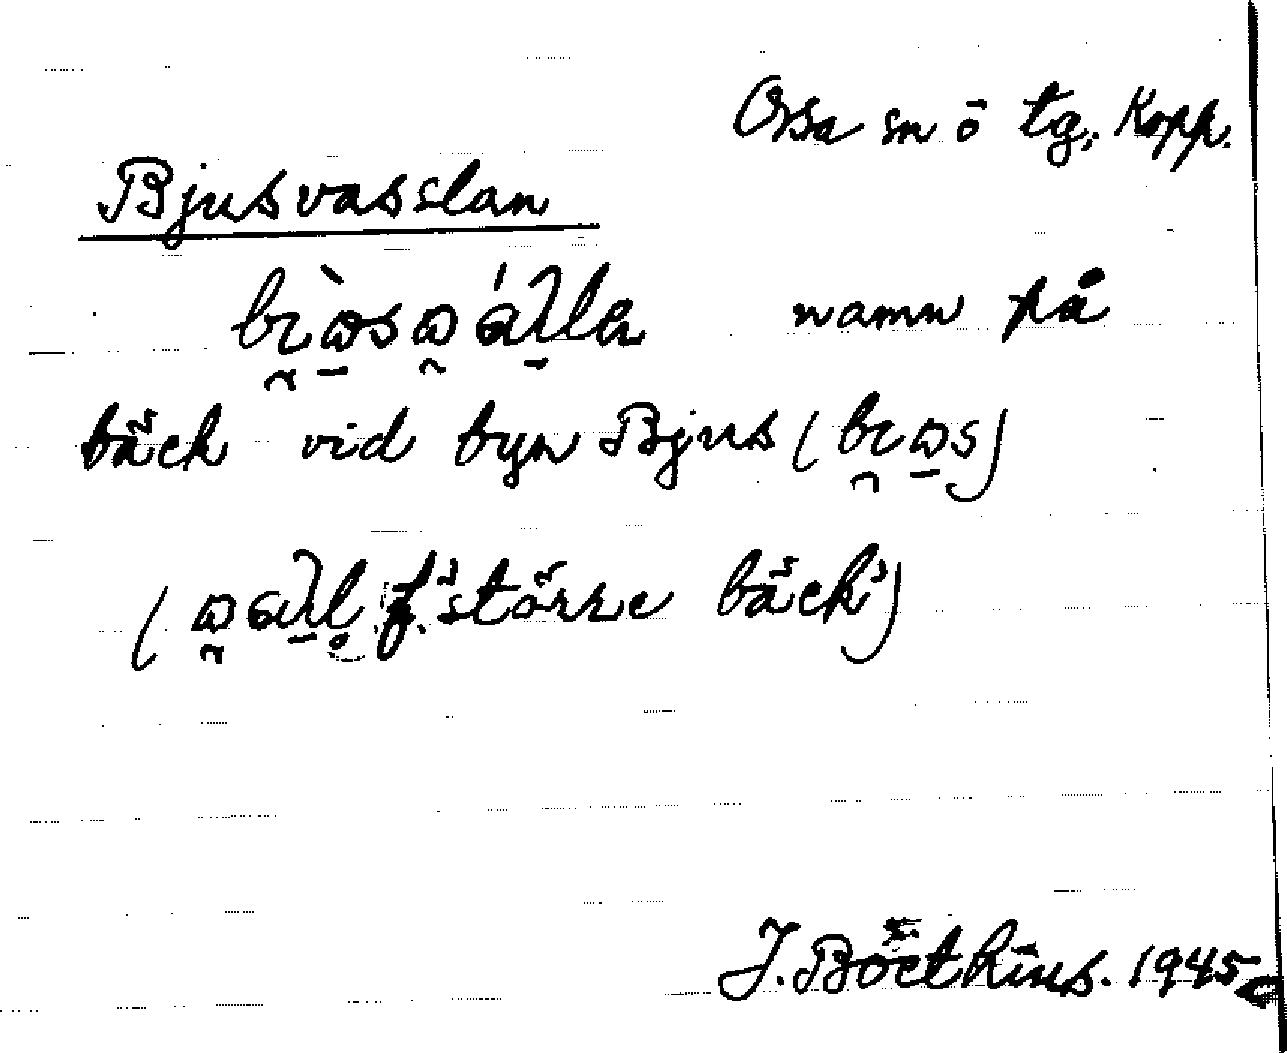 Orsa sn ö tg, Kopp.
Bjusvasslan
namn på
bäck vid byn Bjus (
f. 'större bäck')
J. Boëthius. 1945